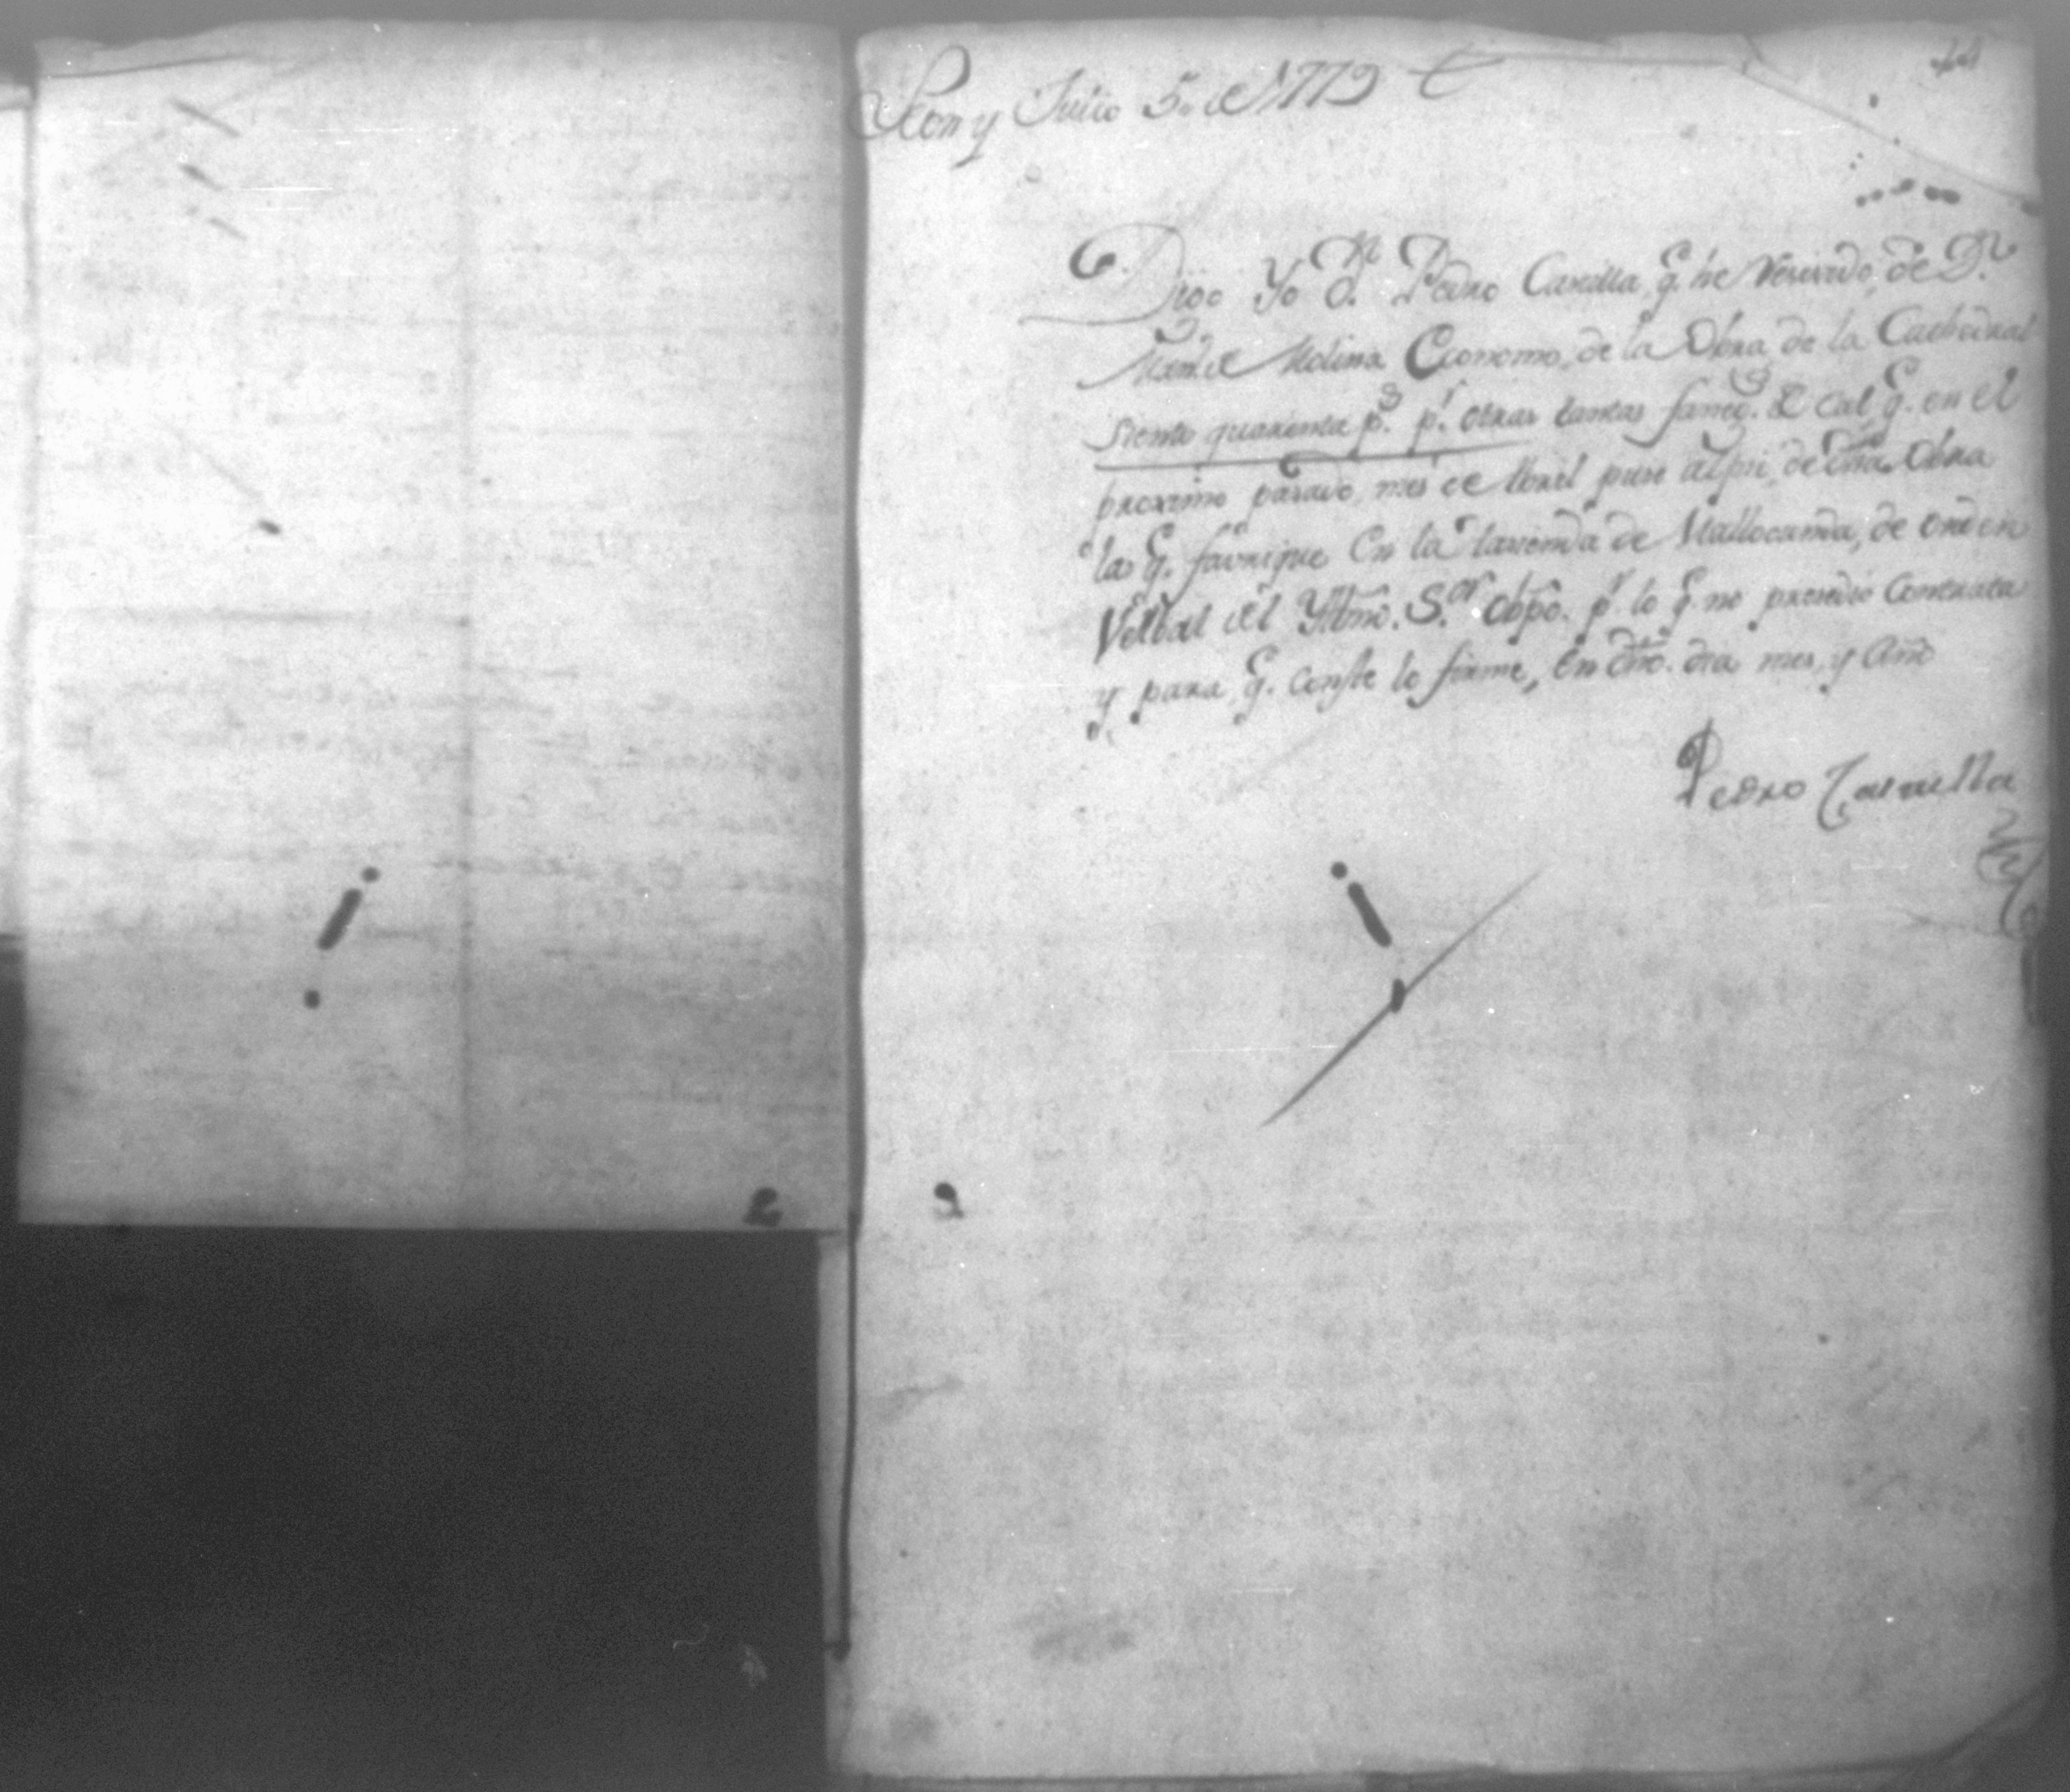 Leon y Julio 5. de 1779
Digo Yo Dn. Pedro Carilla q. he resivido de Dn.
Manuel Molina Econono de la Obra de la Cathedral
siento quarenta ps. pr. otras tantas faneg. de Cal q. en el
proximo pasado mes de Abril puse al pie de dha. Obra
las q. favrique en la hasienda de Mallocanda, de orden
Verbal del Yltmo. Sor. obpo. pr. lo q. no presedio Contrata
y para q. conste lo firme, en dho. dia mes, y Año
Pedro Carrilla